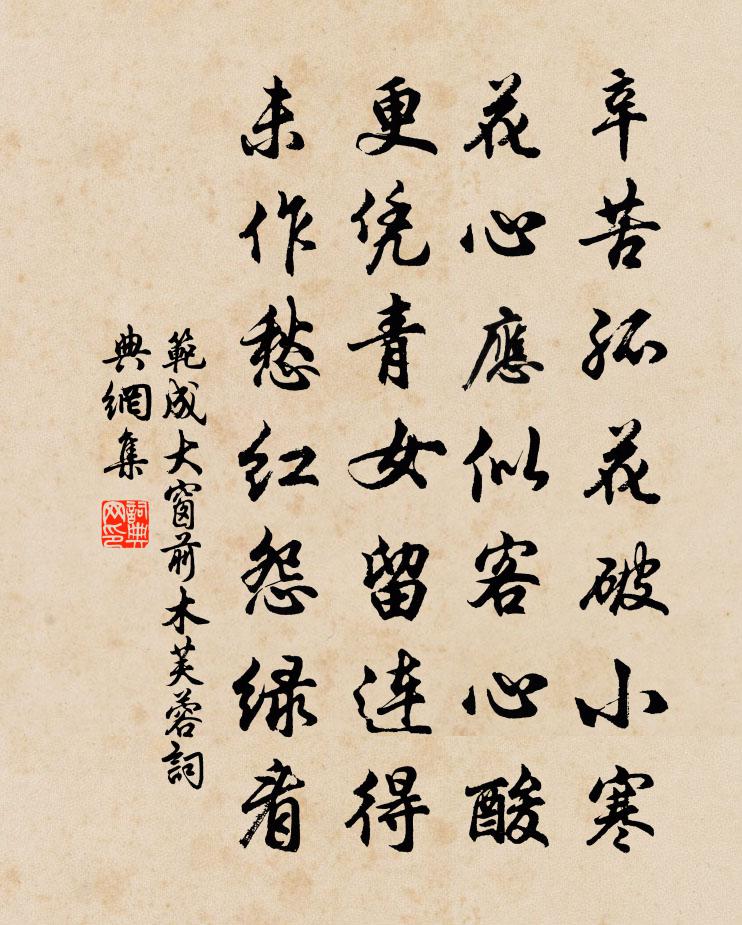 辛苦孤花破小寒
花心應似客心酸
更凭青女留連得
未作愁红怨绿看
範成大窗前木芙蓉詞
典網集
詞典網印